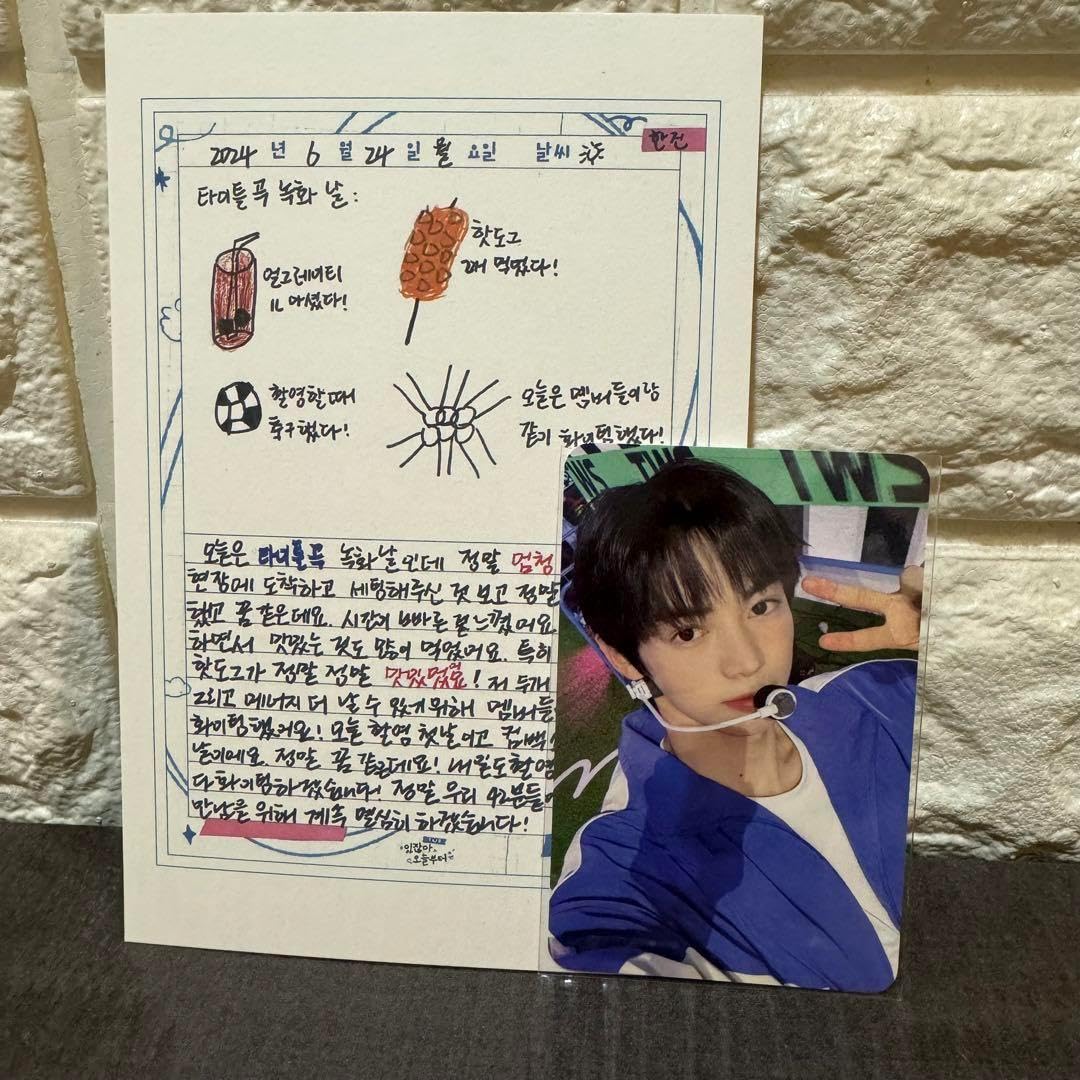 한진
2024 년 6 월 24 일 월 요일 날씨
타이틀 곡 녹화 날:
얼그레이티
1L 마셨다!
핫도그
2개 먹었다!
촬영할 때
축구했다!
오늘은 멤버들이랑
같이 화이팅했다!
오늘은 타이틀곡 녹화날인데 정말 엄청
현장에 도착하고 세팅해주신 것 보고 정말
했고 꿈 같은데요. 시간이 빠른 듯 느꼈어요.
하면서 맛있는 것도 많이 먹었어요. 특히
핫도그가 정말 정말 맛있었어요! 저 두개
그리고 에너지 더 날 수 있게 위해 멤버들
화이팅했어요! 오늘 촬영 첫날이고 컴백
날이에요. 정말 꿈 같은데요! 내일도 촬영
다 화이팅하겠습니다! 정말 우리 42분들
만남을 위해 계속 열심히 하겠습니다!
있잖아
오늘부터
WS TWS TWS